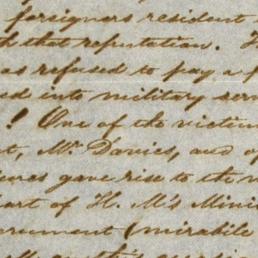 foreigners resident
that reputation.
as refused to pay a
ed into military serv
! One of the victim
t, Mr. Davies, and
gave rise to the
art of H. M's Minis
ernment (mirabile